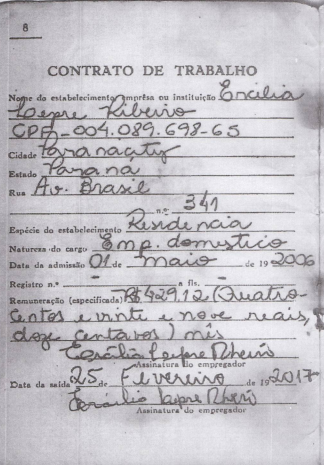 8
CONTRATO DE TRABALHO
Nome do estabelecimento emprêsa ou instituição Ercilia
Lepre Ribeiro
CPF-004.089.698-65
Cidade Paranacity
Estado Paraná
Rua Av. Brasil
n.º 341
Espécie do estabelecimento Residencia
Natureza do cargo Emp. domestico
Data da admissão 01 de maio de 19 2006
Registro n.º — a fls. —
Remuneração (especificada) R$ 429,12 (Quatro-
centos e vinte e nove reais,
doze centavos) mês
Ercilia Lepre Ribeiro
Assinatura do empregador
Data da saída 25 de Fevereiro de 19 2017
Ercilia Lepre Ribeiro
Assinatura do empregador